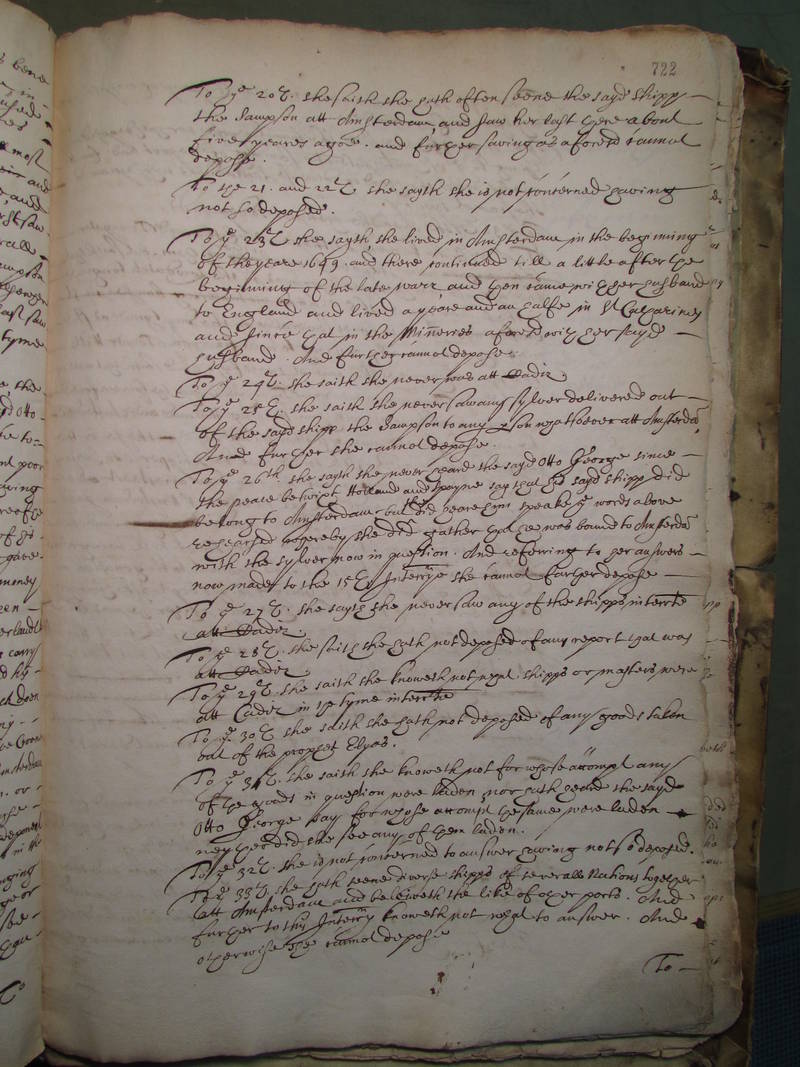 722
To ye 20th. she saith she hath often seene the sayd shipp
the Sampson att Amsterdam and saw her last there about
five yeares agoe. and further saving as aforesd cannot
depose.
To the 21. and 22th she sayth she is not concerned having
not so deposed.
To ye 23th she sayth, she lived in Amsterdam in the beginning
of the yeare 1649. and there continued till a little after the
beginning of the late warr and then came with her husband
to England and lived a yeare and an halfe in St Catherines
and since that in the Minneries aforesd with her sayd
husband. And further cannot depose.
To ye 24th. she saith she never was att Cadiz.
To ye 25th. she saith she never saw any sylver delivered out
of the sayd shipp the Sampson to any person whatsoever att Amsterda
And further she cannot depose.
To ye 26th she sayth she never heard the sayd Otto George since
the peace betwixt Holland and Spayne say that the sayd shipp did
belong to Amsterdam, but she did heare him speake ye words above
rehearsed whereby she did gather that he was bound to Amsterda
with the sylver now in question. And referring to her answers
now made to the 15th Interrye she cannot further depose
To ye 27th. she sayth she never saw any of the shipps interrte
att Cadiz
To ye 28th. she saith she hath not deposed of any report that was
att Cadiz
To ye 29th. she saith she knoweth not what shipps or masters were
att Cadiz in the tyme interrte
To ye 30th she saith she hath not deposed of any goods taken
out of the prophet Elyas.
To ye 31th. she saith she knoweth not for whose accompt any
of the goods in question were laden nor hath heard the sayd
Otto George say for whose accompt the same were laden
neyther did she see any of them laden.
To ye 32th. she is not concerned to answer having not so deposed.
To ye 33th. she hath seene diverse shipps of severall Nations together
att Amsterdam and beleiveth the like of other ports. And
further to this Interry knoweth not what to answer. And
otherwise she cannot depose
To